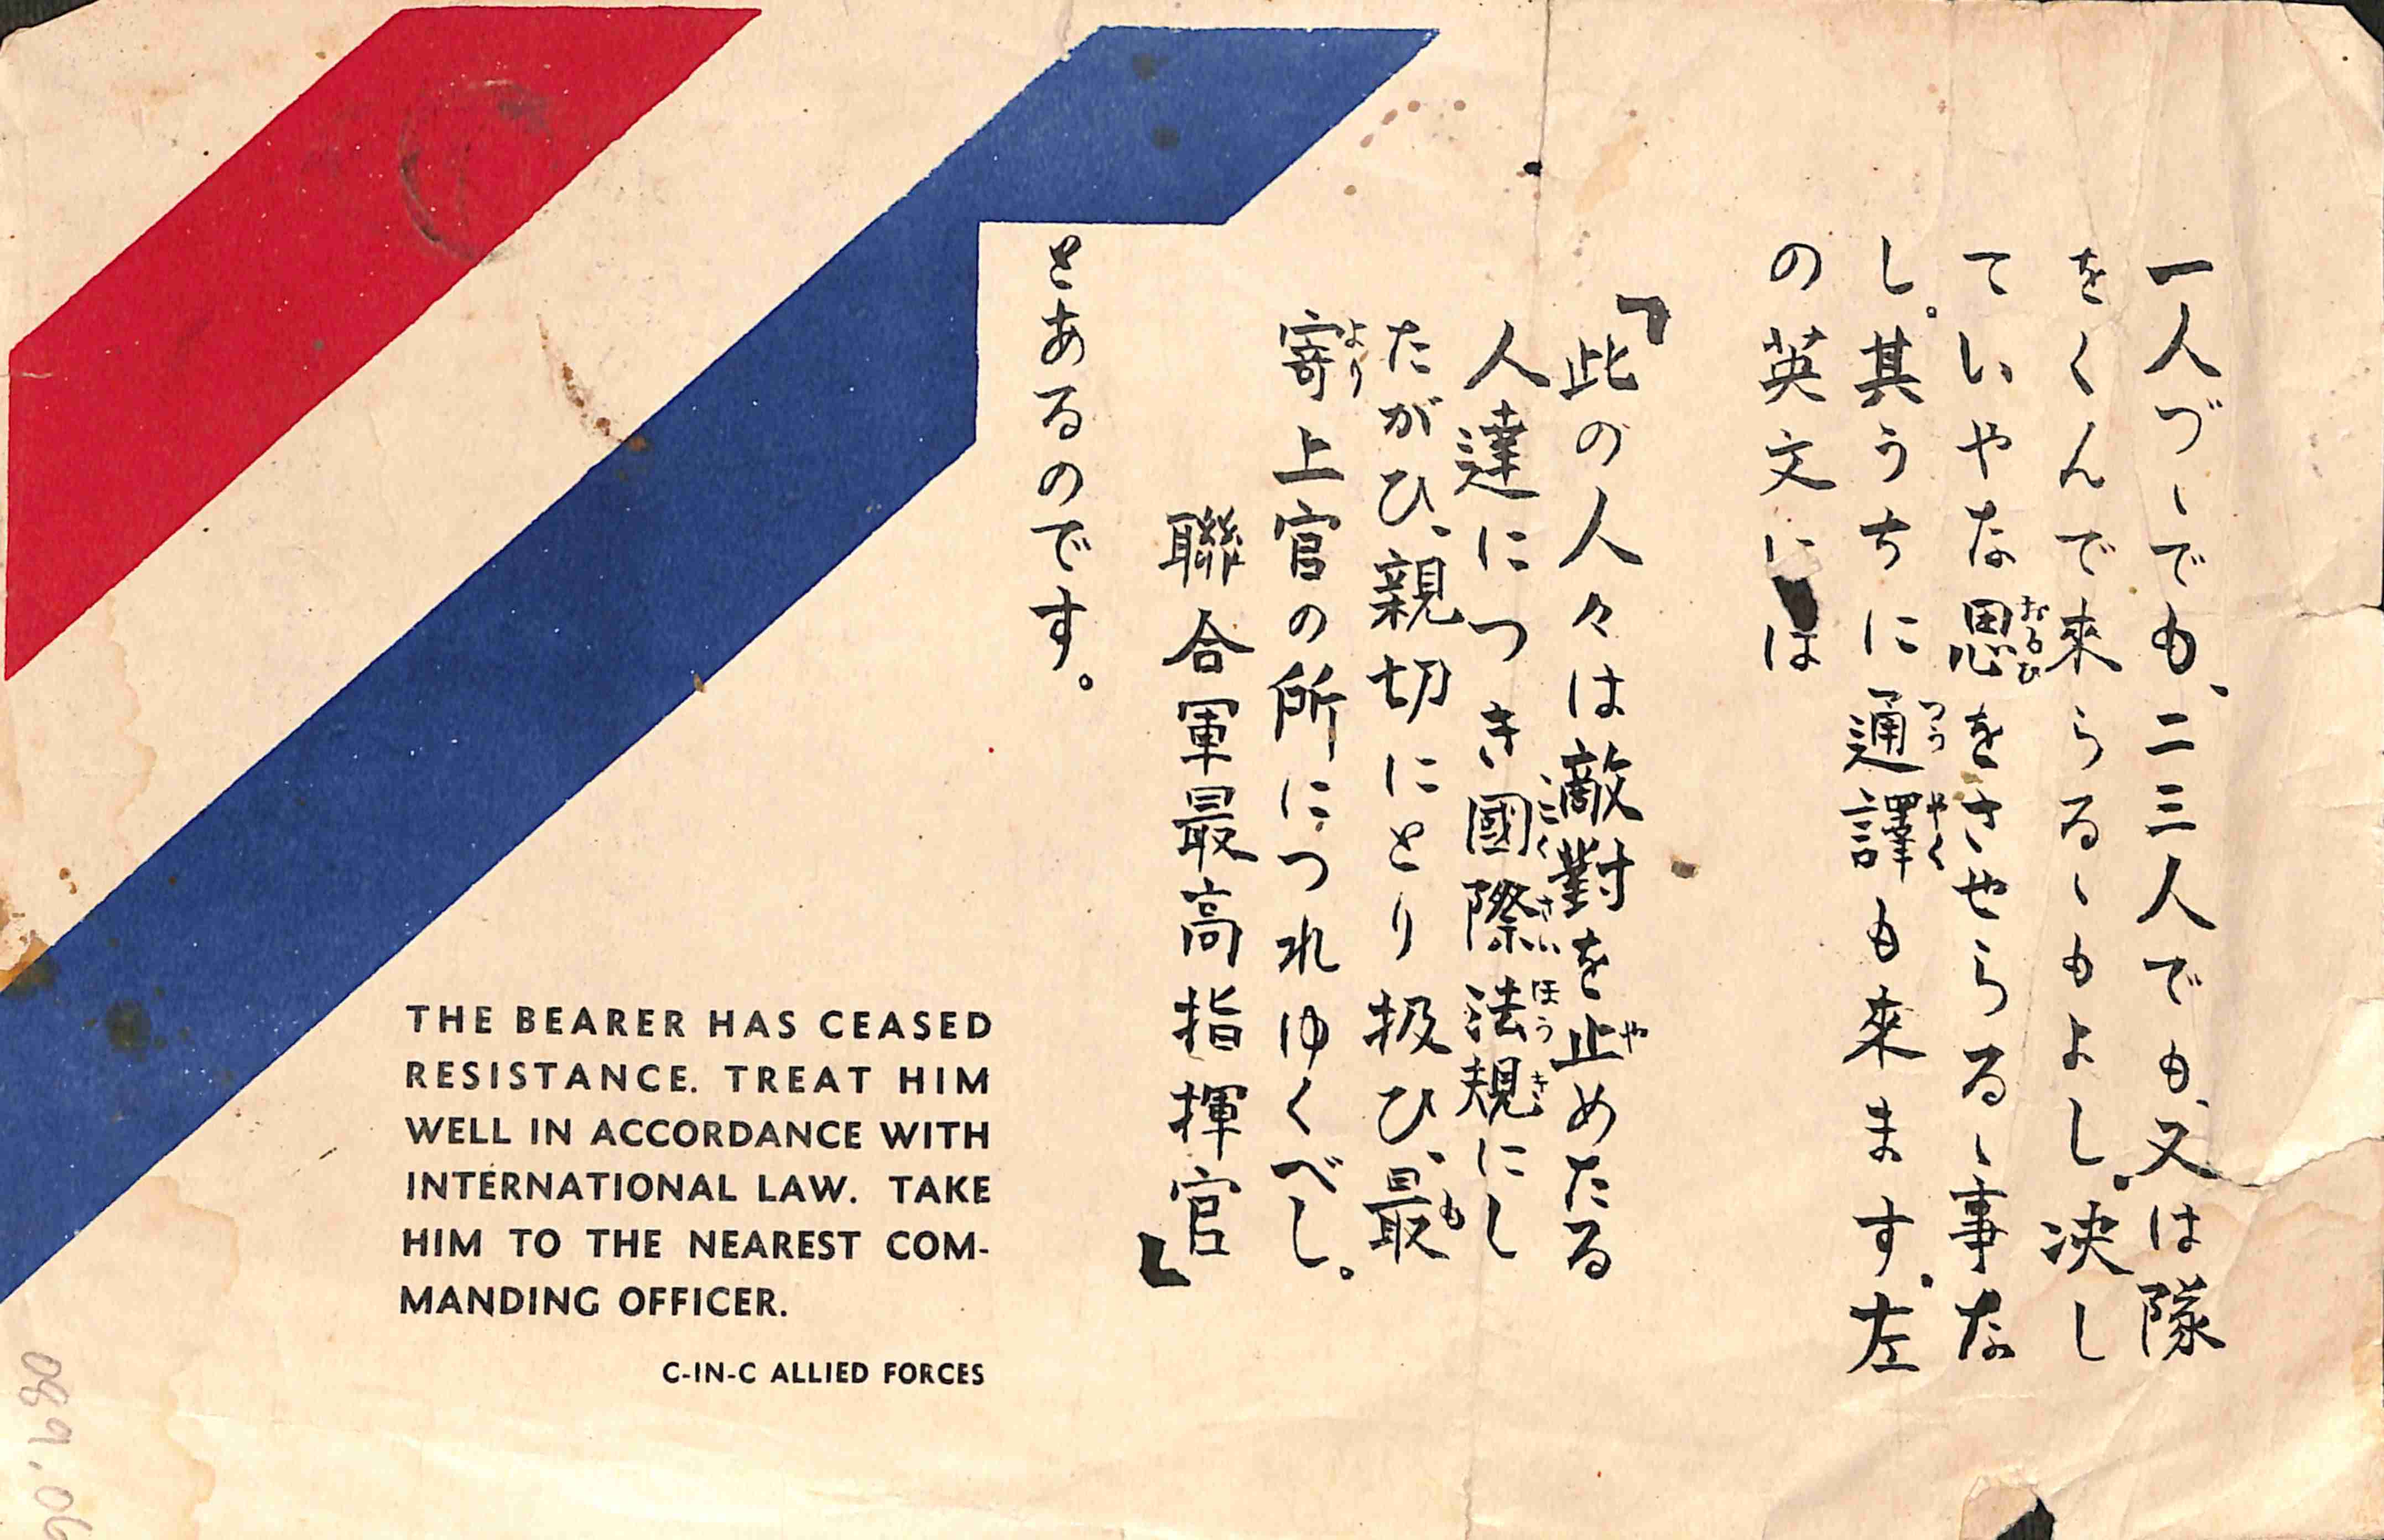 一人づゝでも、二三人でも、又は隊
をくんで來らるゝもよし、決し
ていやな思をさせらるゝ事な
おもひ
し。其うちに通譯も來ます。左
つうやく
の英文には
「此の人々は敵對を止めたる
や
人達につき國際法規にし
こくさいほうき
たがひ、親切にとり扱ひ、最
も
寄上官の所につれゆくべし。
より
聯合軍最高指揮官」
とあるのです。
THE BEARER HAS CEASED
RESISTANCE. TREAT HIM
WELL IN ACCORDANCE WITH
INTERNATIONAL LAW. TAKE
HIM TO THE NEAREST COM-
MANDING OFFICER.
C-IN-C ALLIED FORCES